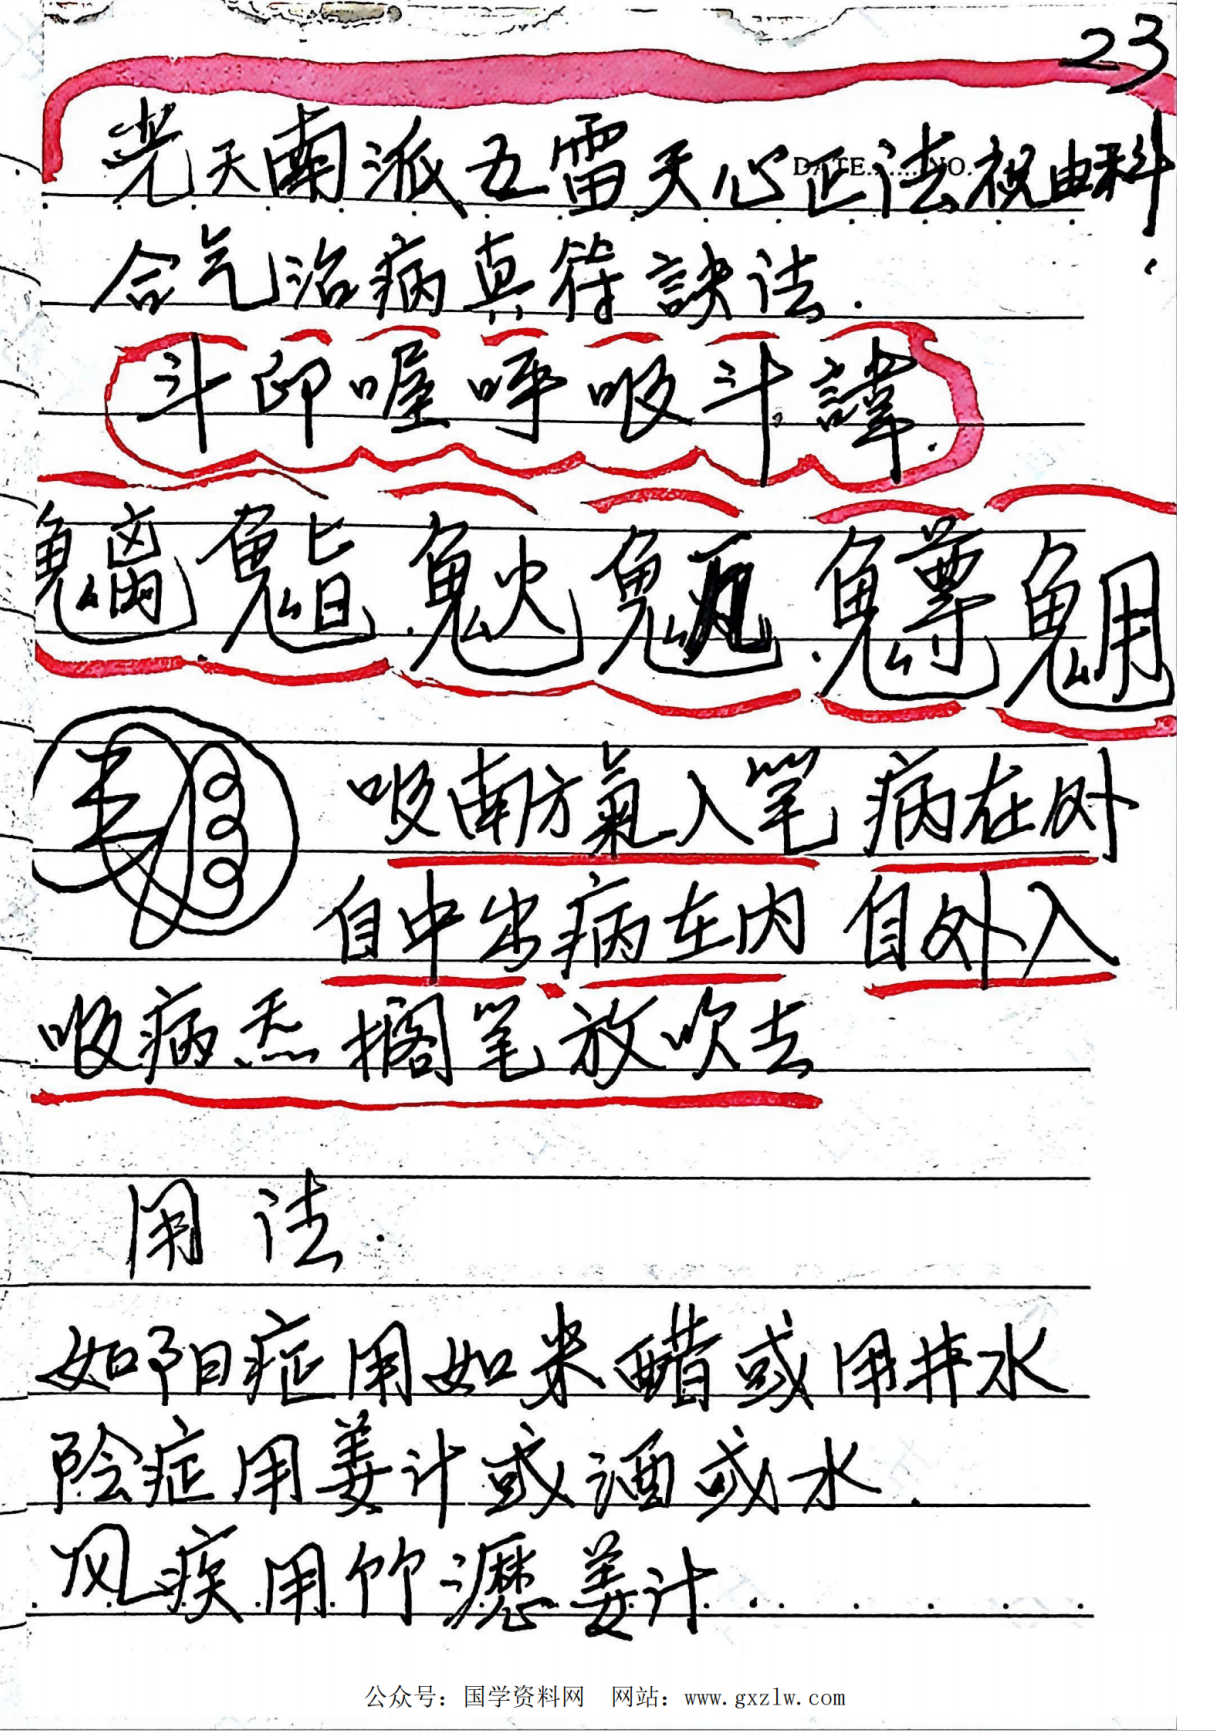 23
DATE......NO.
光天南派五雷天心正法祝由科
合气治病真符訣法.
斗印喔呼吸斗諱.
魑魁魓
吸南方氣入笔 病在外
自中出.病在内 自外入
吸病炁搁笔放吹去
用法.
如阳症用如米醋或用井水
阴症用姜汁或酒或水.
风疾用竹瀝姜汁
公众号：国学资料网 网站：www.gxzlw.com